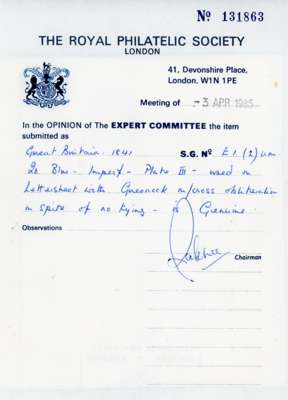 Nº 131863
THE ROYAL PHILATELIC SOCIETY
LONDON
41, Devonshire Place,
London, W1N 1PE
Meeting of -3 APR 1985
In the OPINION of The EXPERT COMMITTEE the item
submitted as
Great Britain 1841 S.G. Nº E1 (2) um
2d Blue - Imperf - Plate III - used on
Lettersheet with Greenock m/cross obliteration
in spite of no tying - is Genuine.
Observations
Chairman